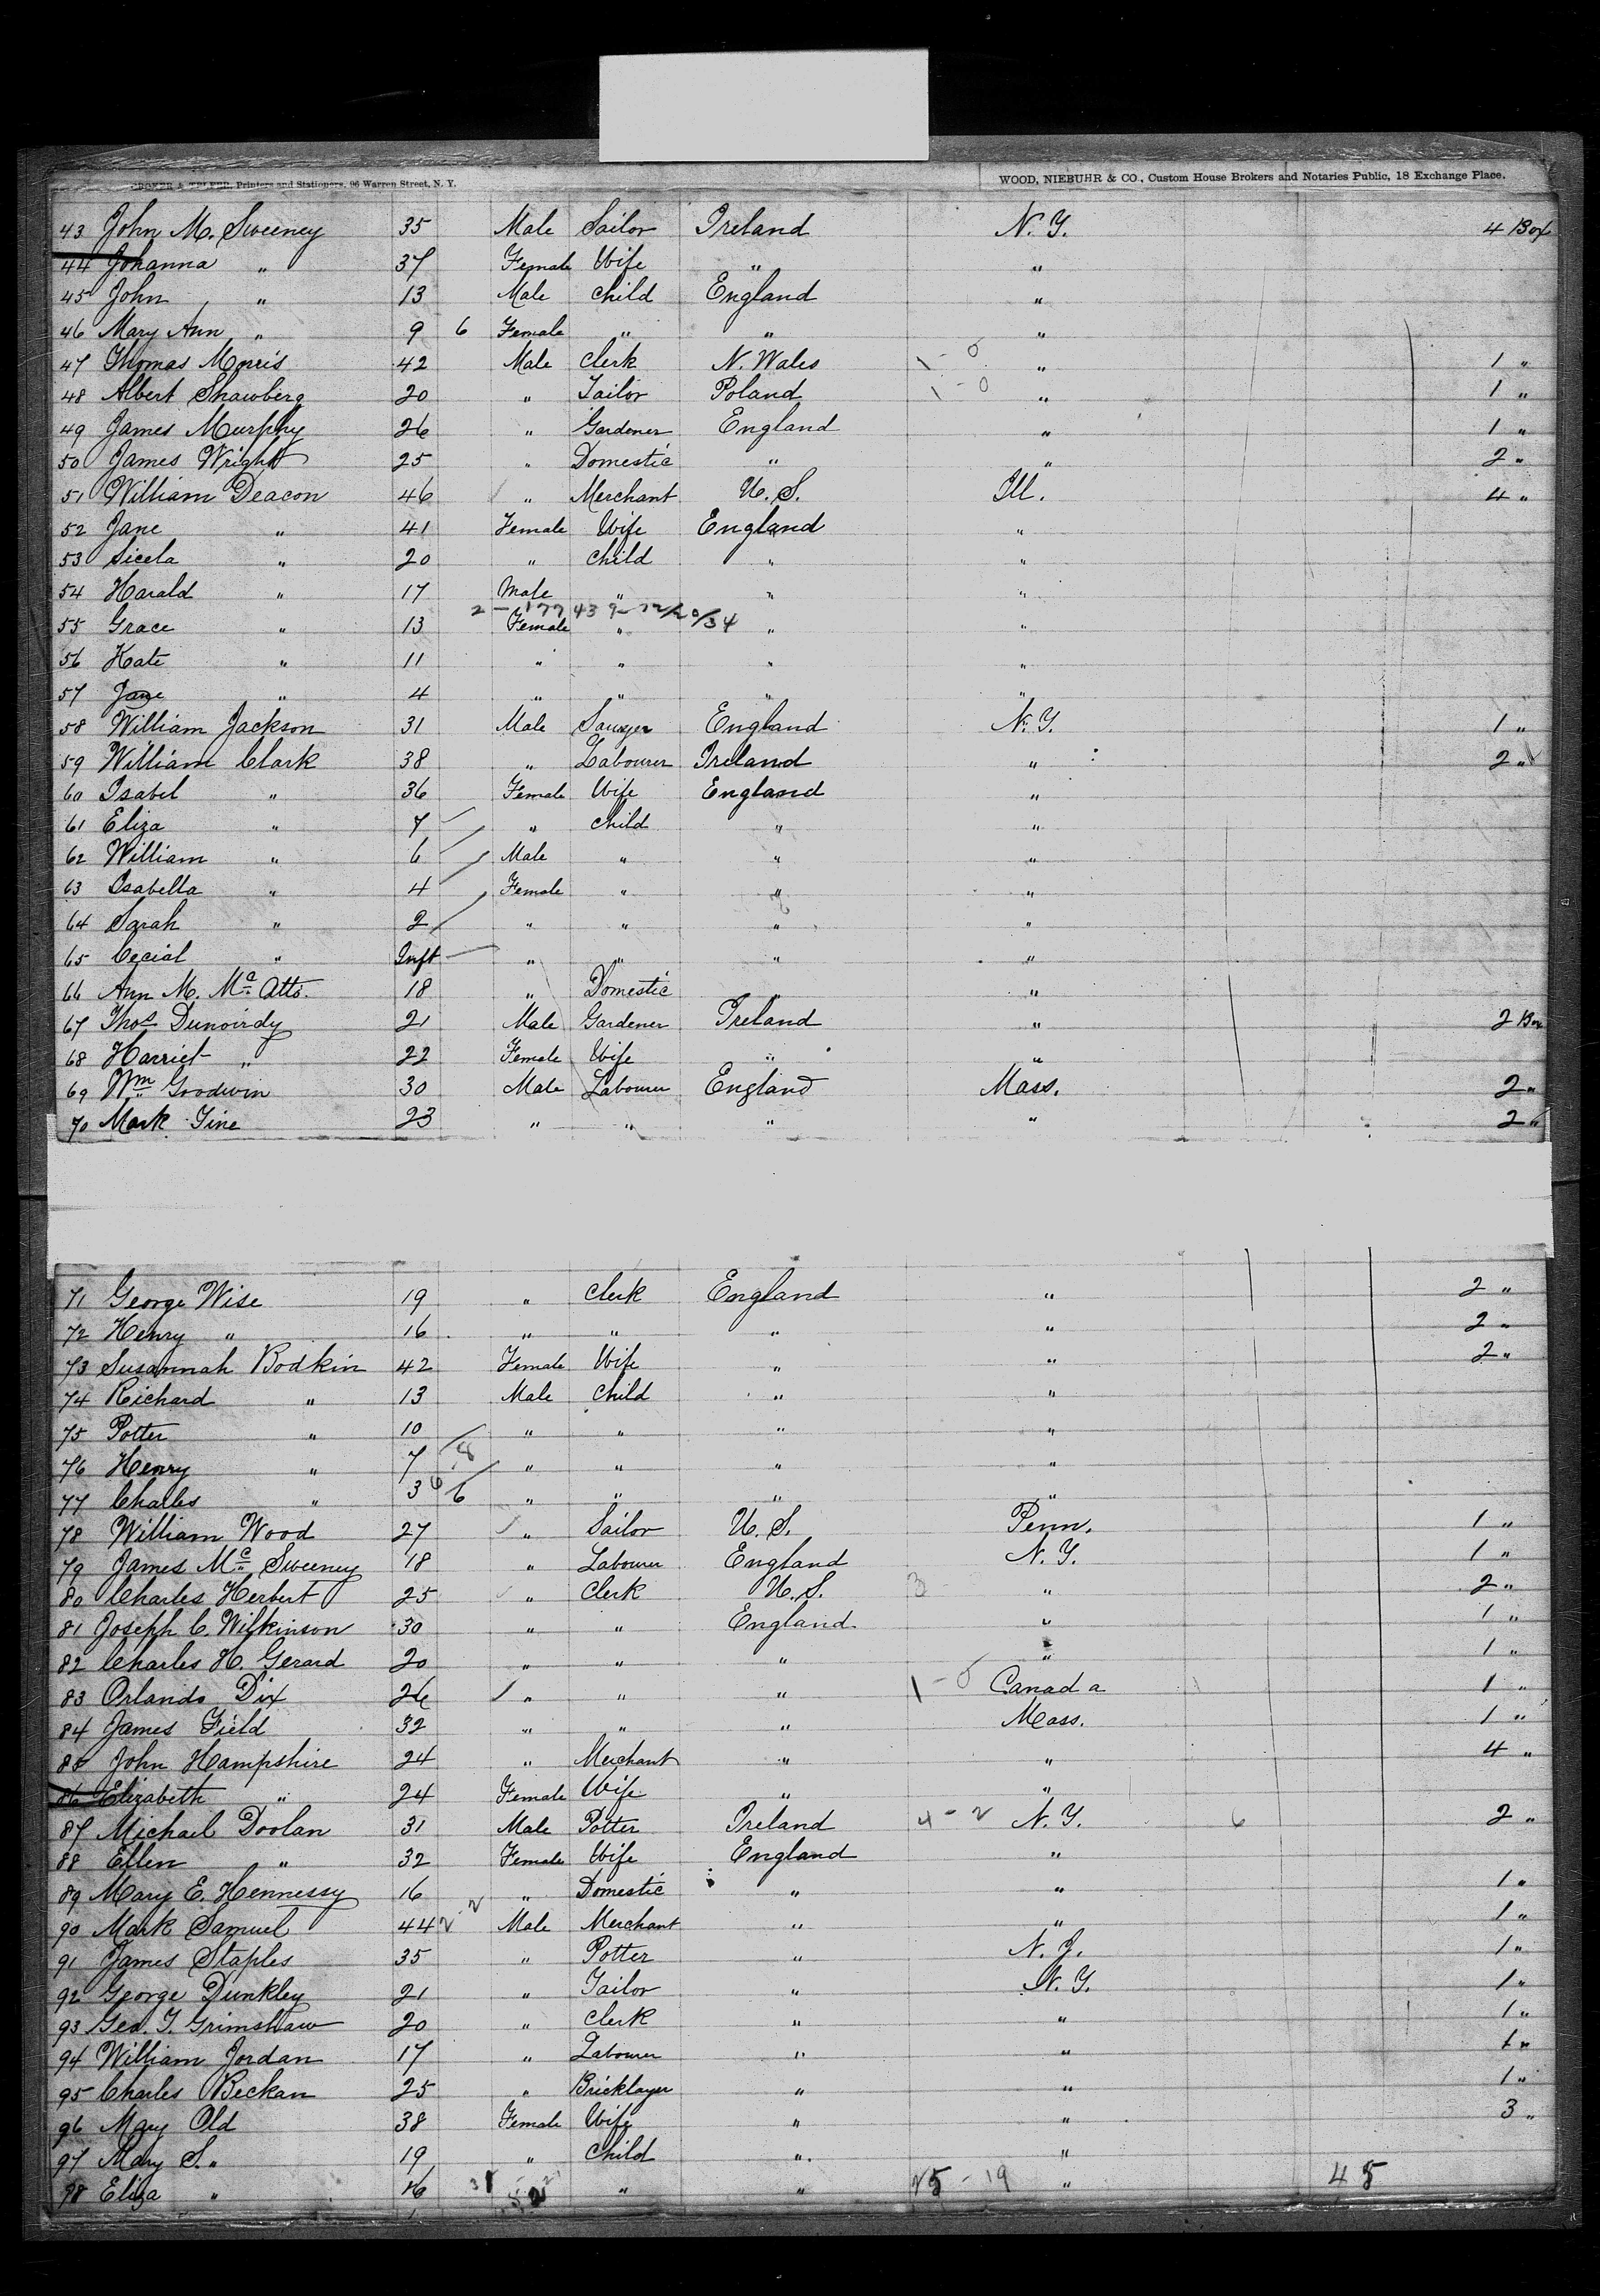 CROKER & TELFER, Printers and Stationers, 96 Warren Street, N. Y. WOOD, NIEBUHR & CO., Custom House Brokers and Notaries Public, 18 Exchange Place.
43 John M. Sweeney 35 Male Sailor Ireland N. Y. 4 Box
44 Johanna " 37 Female Wife " "
45 John " 13 Male Child England "
46 Mary Ann " 9 6 Female " " "
47 Thomas Morris 42 Male Clerk N. Wales 1 - 0 " 1 "
48 Albert Shawberg 20 " Tailor Poland 1 - 0 " 1 "
49 James Murphy 26 " Gardener England " 1 "
50 James Wright 25 " Domestic " " 2 "
51 William Deacon 46 " Merchant U. S. Ill. 4 "
52 Jane " 41 Female Wife England "
53 Sicela " 20 " Child " "
54 Harald " 17 Male " " "
2 - 177439-
55 Grace " 13 Female " " "
56 Kate " 11 " " " "
57 Jane " 4 " " " "
58 William Jackson 31 Male Sawyer England N. Y. 1 "
59 William Clark 38 " Labourer Ireland " 2 "
60 Isabel " 36 Female Wife England "
61 Eliza " 7 " Child " "
62 William " 6 Male " " "
63 Isabella " 4 Female " " "
64 Sarah " 2 " " " "
65 Cecial " Inft " " " "
66 Ann M. Mc Atto. 18 " Domestic " "
67 Thos Dunoirdy 21 Male Gardener Ireland " 2 Box
68 Harriet " 22 Female Wife " "
69 Wm Goodwin 30 Male Labourer England Mass. 2 "
70 Mark Tine 23 " " " " 2 "
71 George Wise 19 " Clerk England " 2 "
72 Henry " 16 " " " " 2 "
73 Susannah Bodkin 42 Female Wife " " 2 "
74 Richard " 13 Male Child " "
75 Potter " 10 " " " "
76 Henry " 7 8 " " " "
77 Charles " 3 6 " " " "
78 William Wood 27 " Sailor U. S. Penn. 1 "
79 James Mc Sweeney 18 " Labourer England N. Y. 1 "
80 Charles Herbert 25 " Clerk U. S. 3 - " 2 "
81 Joseph C. Wilkinson 30 " " England " 1 "
82 Charles H. Gerard 20 " " " " 1 "
83 Orlando Dix 26 " " " 1 - 0 Canada 1 "
84 James Field 32 " " " Mass. 1 "
85 John Hampshire 24 " Merchant " " 4 "
86 Elizabeth " 24 Female Wife " "
87 Michael Doolan 31 Male Potter Ireland 4 - 2 N. Y. 6 2 "
88 Ellen " 32 Female Wife England "
89 Mary E. Hennessy 16 " Domestic " " 1 "
90 Mark Samuel 44 2 - 2 Male Merchant " " 1 "
91 James Staples 35 " Potter " N. J. 1 "
92 George Dunkley 21 " Tailor " N. Y. 1 "
93 Geo. T. Grimshaw 20 " Clerk " " 1 "
94 William Jordan 17 " Labourer " " 1 "
95 Charles Beckan 25 " Bricklayer " " 1 "
96 Mary Old 38 Female Wife " " 3 "
97 Mary S. " 19 " Child " "
98 Eliza " 16 " " 25 - 19 " 45